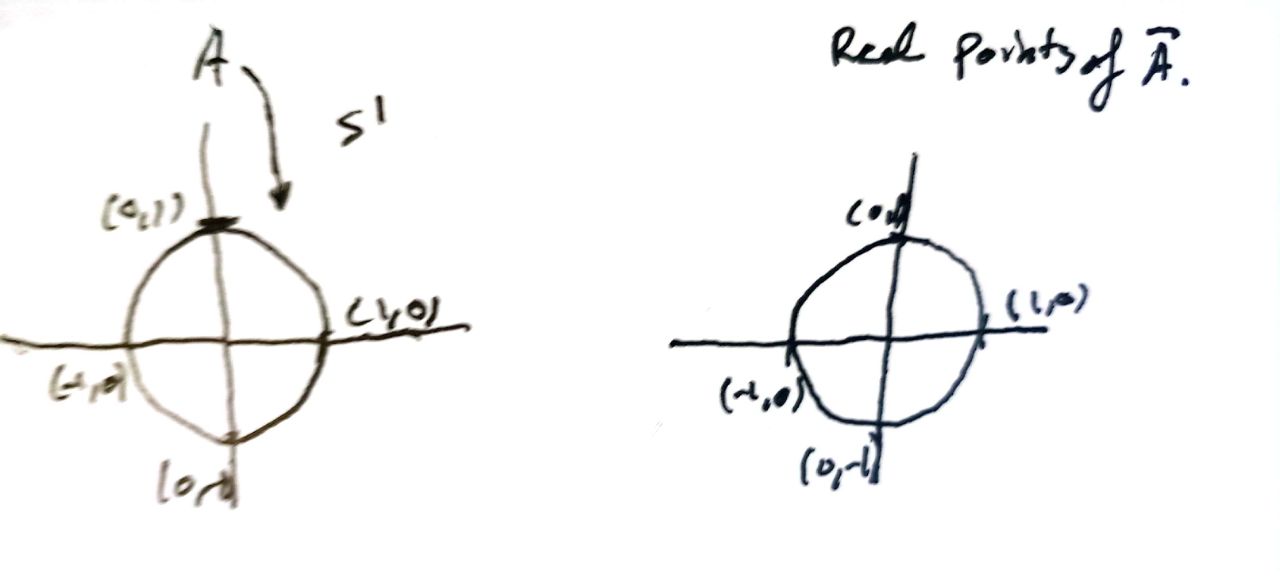 A
S¹
(0,1)
(1,0)
(-1,0)
(0,-1)
Real points of A̅.
(0,1)
(1,0)
(-1,0)
(0,-1)